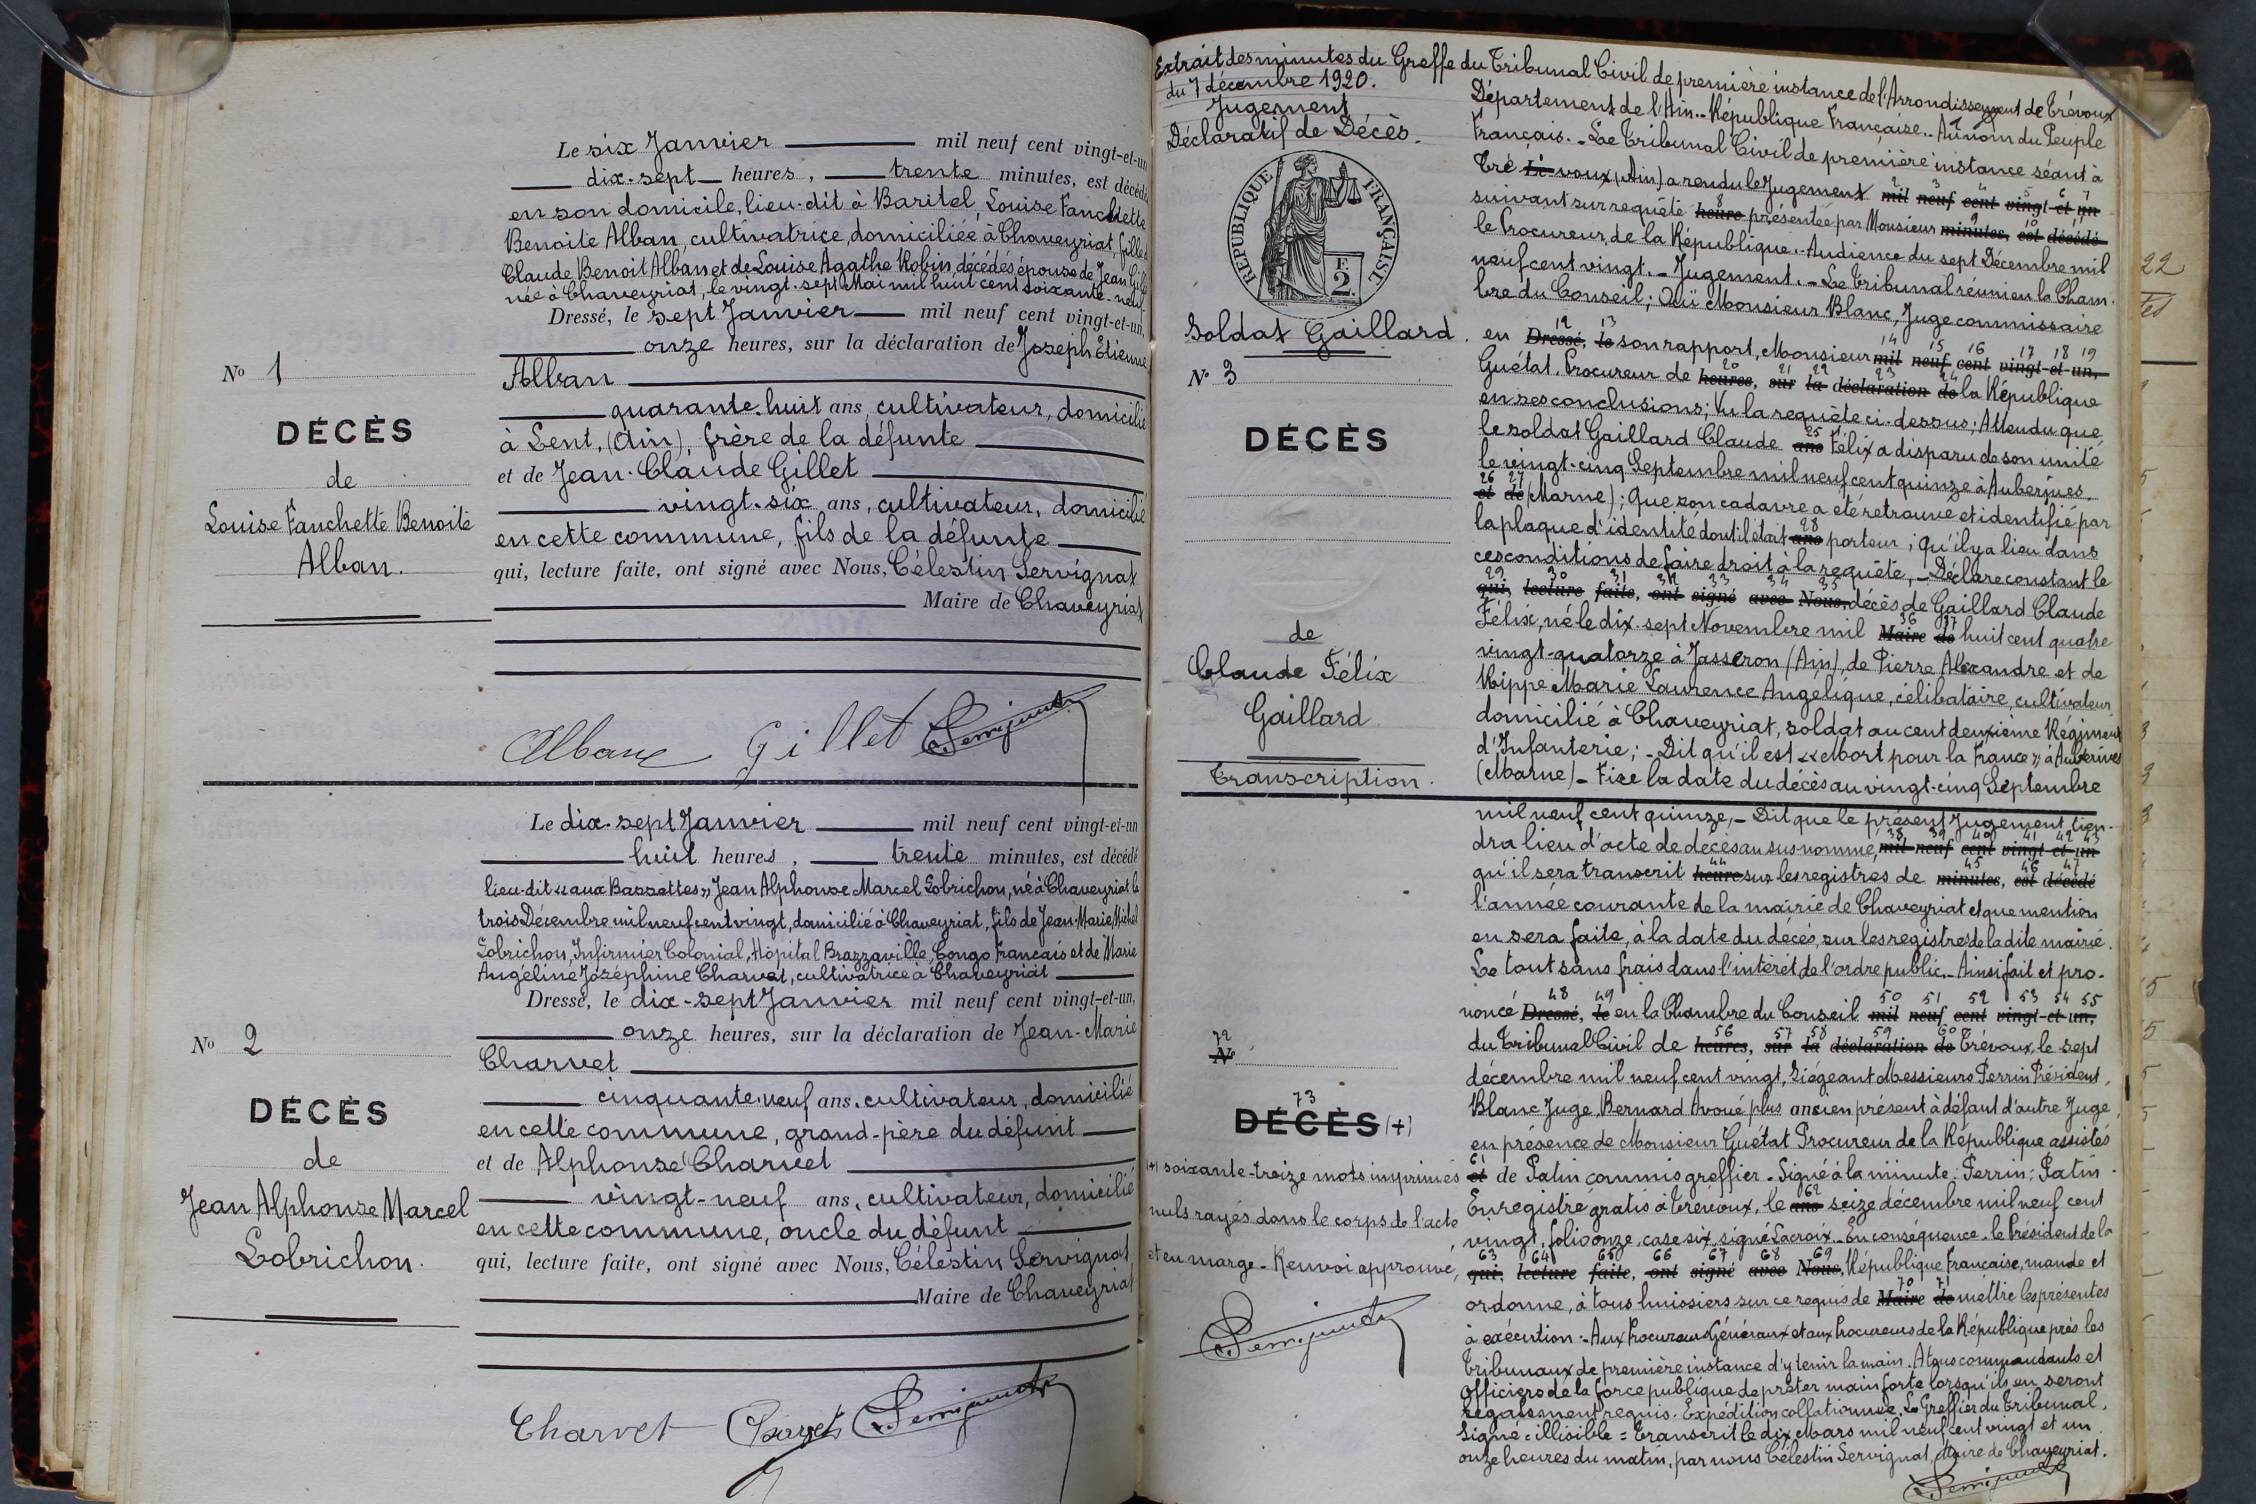 Le six Janvier mil neuf cent vingt-et-un
dix-sept heures, trente minutes, est décédé
en son domicile, lieu-dit à Baritel, Louise Fanchette
Benoite Alban, cultivatrice, domiciliée à Chaveyriat, fille de
Claude Benoit Alban et de Louise Agathe Robin, décédés épouse de Jean
née à Chaveyriat, le vingt-sept Mai mil huit cent soixante-neuf
Dressé, le sept Janvier mil neuf cent vingt-et-un,
onze heures, sur la déclaration de Joseph Etienne
Nº 1
Alban
quarante-huit ans, cultivateur, domicilié
DÉCÈS
à Lent, (Ain), frère de la défunte
de
et de Jean-Claude Gillet
Louise Fanchette Benoite
vingt-six ans, cultivateur, domicilié
Alban.
en cette commune, fils de la défunte
qui, lecture faite, ont signé avec Nous, Célestin Servignat
Maire de Chaveyriat
Albane Gillet C. Servignat
Le dix-sept Janvier mil neuf cent vingt-et-un
huit heures, trente minutes, est décédé
lieu-dit « aux Bassettes », Jean Alphonse Marcel Lobrichon, né à Chaveyriat le
trois Décembre mil neuf cent vingt, domicilié à Chaveyriat, fils de Jean-Marie Michel
Lobrichon, Infirmier Colonial, Hôpital Brazzaville, Congo Français et de Marie
Angéline Joséphine Charvet, cultivatrice à Chaveyriat
Dressé, le dix-sept Janvier mil neuf cent vingt-et-un,
onze heures, sur la déclaration de Jean-Marie
Nº 2
Charvet
cinquante-neuf ans, cultivateur, domicilié
DÉCÈS
en cette commune, grand-père du défunt
de
et de Alphonse Charvet
Jean Alphonse Marcel
vingt-neuf ans, cultivateur, domicilié
Lobrichon.
en cette commune, oncle du défunt
qui, lecture faite, ont signé avec Nous, Célestin Servignat
Maire de Chaveyriat
Charvet Charvet C. Servignat
Extrait des minutes du Greffe du Tribunal Civil de première instance de l'Arrondissement de Trévoux
du 7 décembre 1920.
Jugement
Déclaratif de Décès.
RÉPUBLIQUE FRANÇAISE
F.
2.
Soldat Gaillard.
Nº 3
DÉCÈS
de
Claude Félix
Gaillard
Transcription.
Département de l'Ain.- République Française.- Au nom du Peuple
Français.- Le Tribunal Civil de première instance séant à
1
Tré Le voux (Ain) a rendu le Jugement mil neuf cent vingt-et-un
2 3 4 5 6 7
suivant sur requête heure présentée par Monsieur minutes, est décédé
8 9 10 11
le Procureur de la République.- Audience du sept Décembre mil
neuf cent vingt.- Jugement.- Le Tribunal réuni en la Cham-
bre du Conseil; Ouï Monsieur Blanc, Juge commissaire
12 13
en Dressé, le son rapport, Monsieur mil neuf cent vingt-et-un,
14 15 16 17 18 19
Guétat, Procureur de heures, sur la déclaration de la République
20 21 22 23 24
en ses conclusions; Vu la requête ci-dessus; Attendu que
le soldat Gaillard Claude ans Félix a disparu de son unité
25
le vingt-cinq Septembre mil neuf cent quinze à Auberives
26 27
et de (Marne); Que son cadavre a été retrouvé et identifié par
la plaque d'identité dont il était ans porteur; Qu'il y a lieu dans
28
ces conditions de faire droit à la requête,- Déclare constant le
29 30 31 32 33 34 35
qui, lecture faite, ont signé avec Nous, décès de Gaillard Claude
Félix, né le dix-sept Novembre mil Maire de huit cent quatre
36 37
vingt-quatorze à Jasseron (Ain), de Pierre Alexandre et de
Rippe Marie Laurence Angélique, célibataire, cultivateur,
domicilié à Chaveyriat, soldat au cent deuxième Régiment
d'Infanterie;- Dit qu'il est « Mort pour la France » à Auberives
(Marne)- Fixe la date du décès au vingt-cinq Septembre
mil neuf cent quinze,- Dit que le présent Jugement tien-
38 39 40 41 42 43
dra lieu d'acte de décès au sus-nommé, mil neuf cent vingt-et-un
44 45 46 47
qu'il sera transcrit heure sur les registres de minutes, est décédé
l'année courante de la mairie de Chaveyriat et que mention
en sera faite, à la date du décès, sur les registres de la dite mairie.
Le tout sans frais dans l'intérêt de l'ordre public.- Ainsi fait et pro-
48 49 50 51 52 53 54 55
noncé Dressé, le en la Chambre du Conseil mil neuf cent vingt-et-un,
56 57 58 59 60
du Tribunal Civil de heures, sur la déclaration de Trévoux, le sept
décembre mil neuf cent vingt, Siégeant Messieurs Perrin Président,
Blanc Juge, Bernard Avoué plus ancien présent à défaut d'autre Juge,
en présence de Monsieur Guétat Procureur de la République assistés
61
et de Patin commis greffier.- Signé à la minute: Perrin: Patin.
62
Enregistré gratis à Trévoux, le ans seize décembre mil neuf cent
vingt, folio onze, case six, signé Lacroix.- En conséquence - le Président de la
63 64 65 66 67 68 69
qui, lecture faite, ont signé avec Nous, République Française, mande et
70 71
ordonne, à tous huissiers sur ce requis de Maire de mettre les présentes
à exécution:- Aux Procureurs Généraux et aux Procureurs de la République près les
Tribunaux de première instance d'y tenir la main. A tous commandants et
Officiers de la force publique de prêter main forte lorsqu'ils en seront
légalement requis. Expédition collationnée. Le Greffier du Tribunal.
Signé: illisible = Transcrit le dix Mars mil neuf cent vingt et un
onze heures du matin, par nous Célestin Servignat, Maire de Chaveyriat.
C. Servignat
72
Nº
73
DÉCÈS (+)
(+) soixante-treize mots imprimés
nuls rayés dans le corps de l'acte
et en marge - Renvoi approuvé,
C. Servignat
22